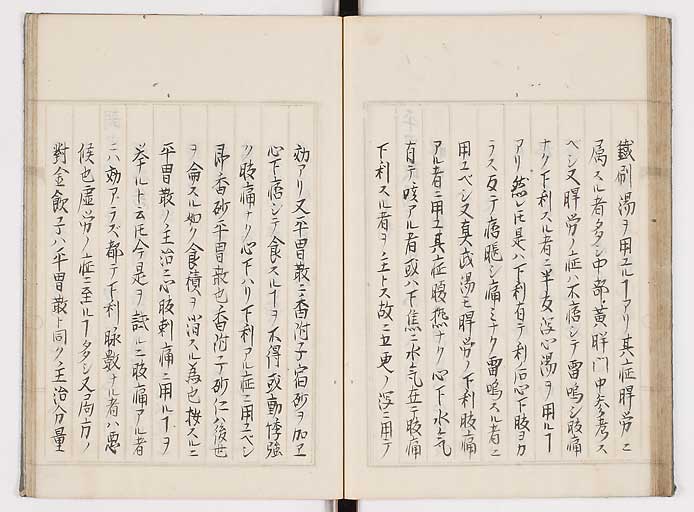 鐵刷湯ヲ用ユルヿアリ其症脾労ニ
属スル者多シ中部黄脾門中参考ス
ベシ又脾労ノ症ハ不痞シテ雷鳴シ腹痛
ナク下利スル者ニ半夏瀉心湯ヲ用ルヿ
アリ然レ𪜈是ハ下利有テ利后心下肢ヨカ
ラス反テ痞𩞄シ痛ミナク雷鳴スル者ニ
用ユベシ又真武湯モ脾労ノ下利腹痛
アル者ニ用ユ其症腹熱ナク心下水気
有テ咳アル者或ハ下焦ニ水気在テ腹痛
下利スル者ヲ主トス故ニ五更ノ瀉ニ用テ
効アリ又平胃散ニ香附子宿砂ヲ加ヱ
心下痞シテ食スルヿヲ不得或動悸強
ク腹痛ナク心下ハリ下利アル症ニ用ユベシ
即香砂平胃散也香附子砂仁後世
ヲ侖スル如ク食積ヲ消スル為也按スルニ
平胃散ノ主治ニ心腹刺痛ニ用ルヿヲ
挙ルト云𪜈今是ヲ試ルニ腹痛アル者
ニハ効アラズ都テ下利脉數ナル者ハ悪
候也虚労ノ症ニ至ルヿ多シ又局方ノ
對金飲子ハ平胃散ト同ク主治分量